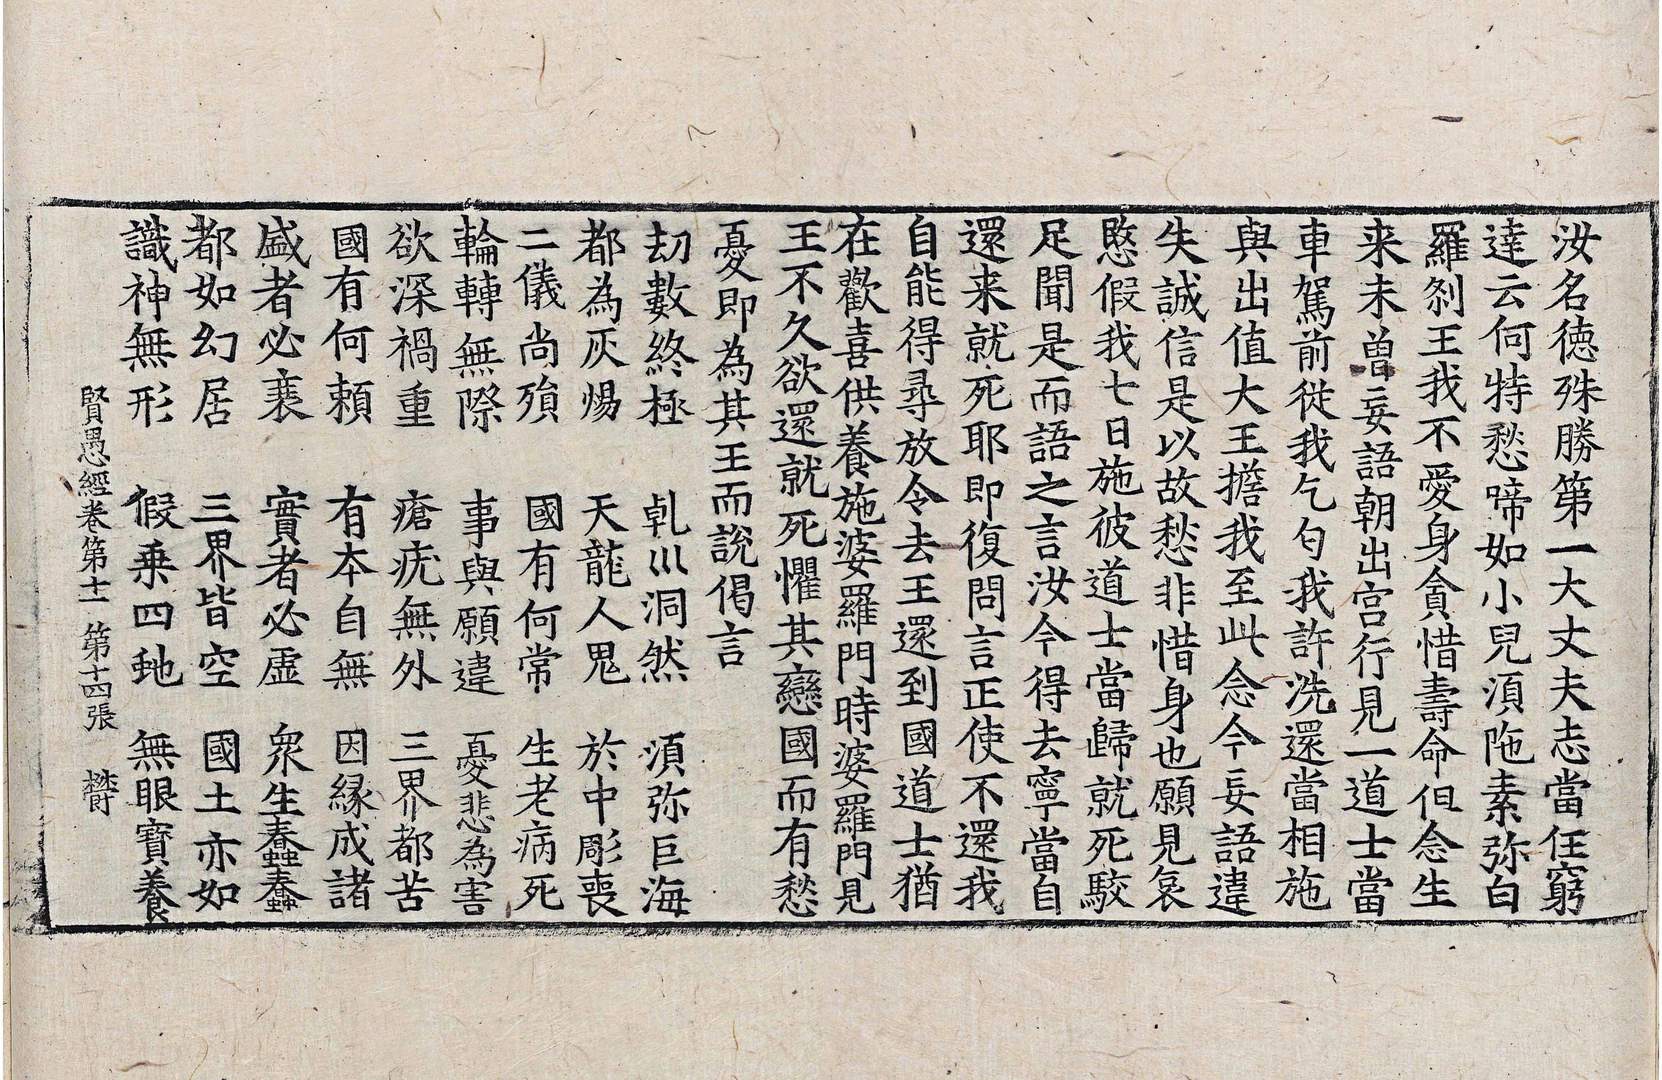 汝名德殊勝第一大丈夫志當任窮
達云何特愁啼如小兒湏陁素弥白
羅刹王我不愛身貪惜壽命但念生
来未曽妄語朝出宫行見一道士當
車駕前從我乞匃我許洗還當相施
與出值大王擔我至此念今妄語違
失誠信是以故愁非惜身也願見哀
愍假我七日施彼道士當歸就死駮
足聞是而語之言汝今得去寧當自
還来就死耶即復問言正使不還我
自能得尋放令去王還到國道士猶
在歡喜供養施婆羅門時婆羅門見
王不久欲還就死懼其戀國而有愁
憂即為其王而說偈言
劫數終極 乹川洞然 湏弥巨海
都為灰煬 天龍人鬼 於中彫喪
二儀尚殞 國有何常 生老病死
輪轉無際 事與願違 憂悲為害
欲深禍重 瘡疣無外 三界都苦
國有何頼 有本自無 因縁成諸
盛者必衰 實者必虛 衆生蠢蠢
都如幻居 三界皆空 國土亦如
識神無形 假乗四虵 無眼寳養
賢愚經卷第十一 第十四張